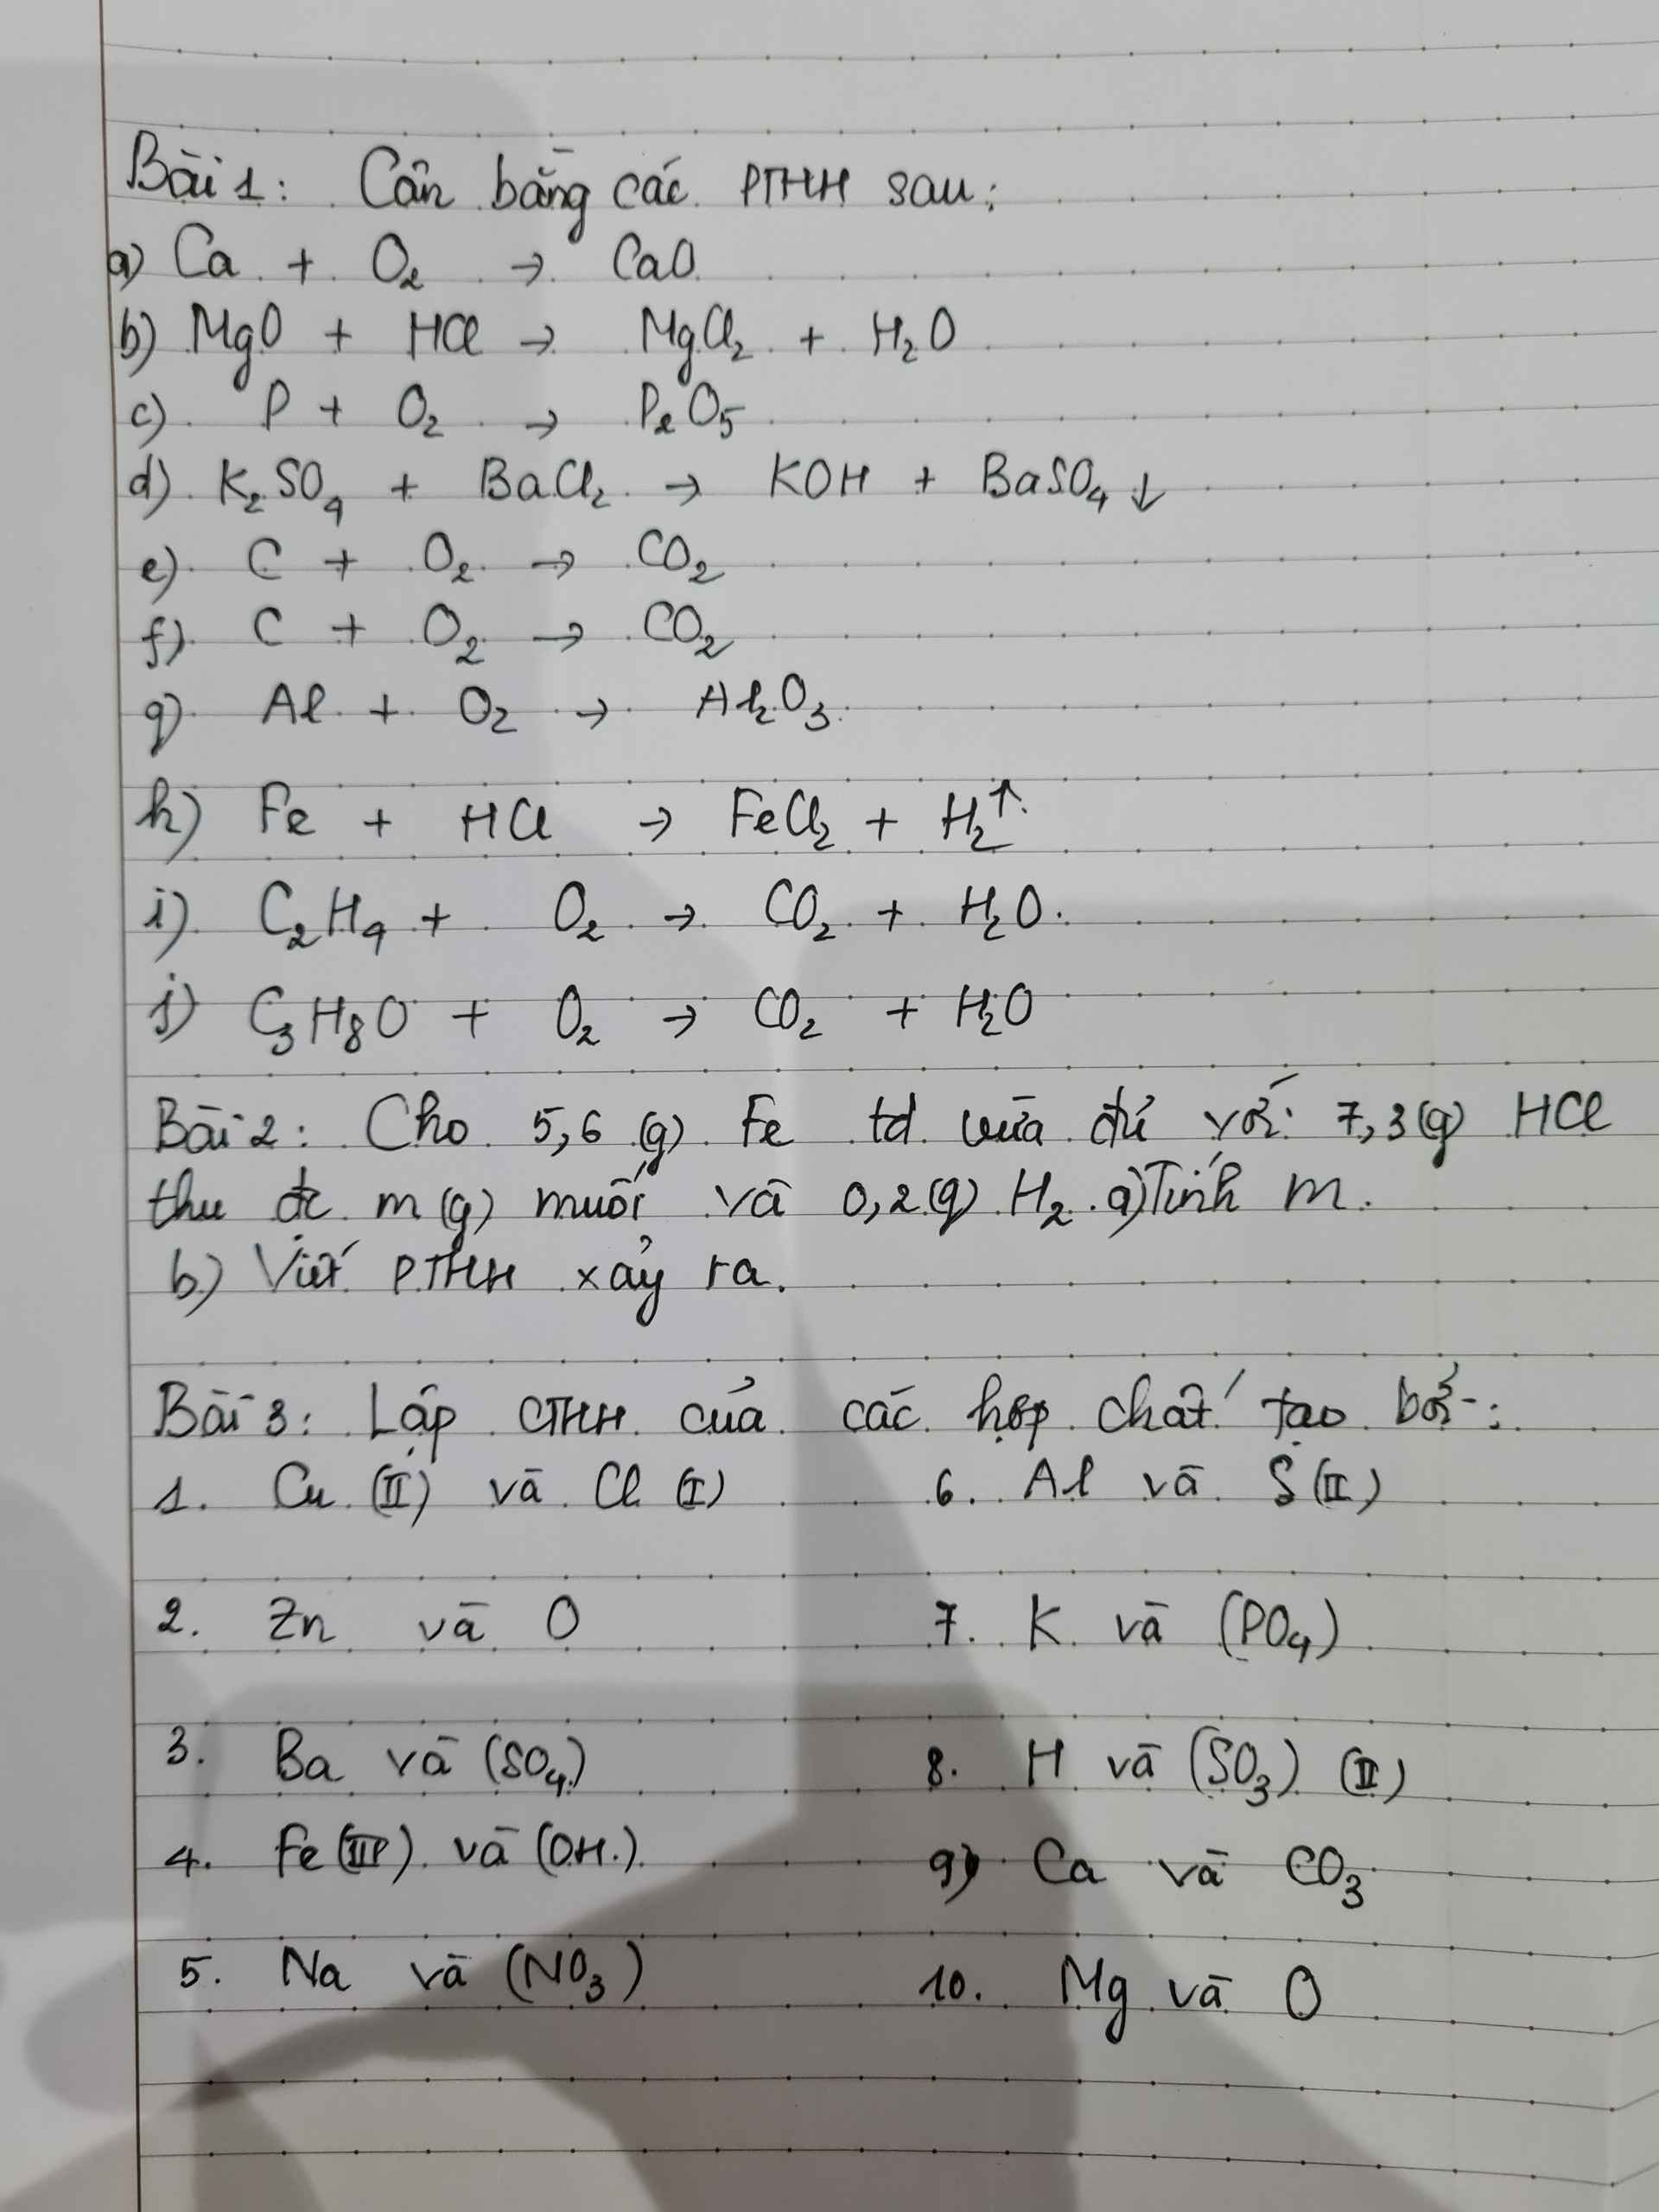 Bài 1: Cân bằng các PTHH sau:
a) Ca + O₂ → CaO
b) MgO + HCl → MgCl₂ + H₂O
c) P + O₂ → P₂O₅
d) K₂SO₄ + BaCl₂ → KOH + BaSO₄ ↓
e) C + O₂ → CO₂
f) C + O₂ → CO₂
g) Al + O₂ → Al₂O₃
h) Fe + HCl → FeCl₂ + H₂↑
i) C₂H₄ + O₂ → CO₂ + H₂O
j) C₃H₈O + O₂ → CO₂ + H₂O
Bài 2: Cho 5,6 (g) Fe td vừa đủ với 7,3 (g) HCl
thu đc m (g) muối và 0,2 (g) H₂. a) Tính m.
b) Viết PTHH xảy ra.
Bài 3: Lập CTHH của các hợp chất tạo bởi:
1. Cu (II) và Cl (I) 6. Al và S (II)
2. Zn và O 7. K và (PO₄)
3. Ba và (SO₄) 8. H và (SO₃) (II)
4. Fe (III) và (OH) 9) Ca và CO₃
5. Na và (NO₃) 10. Mg và O